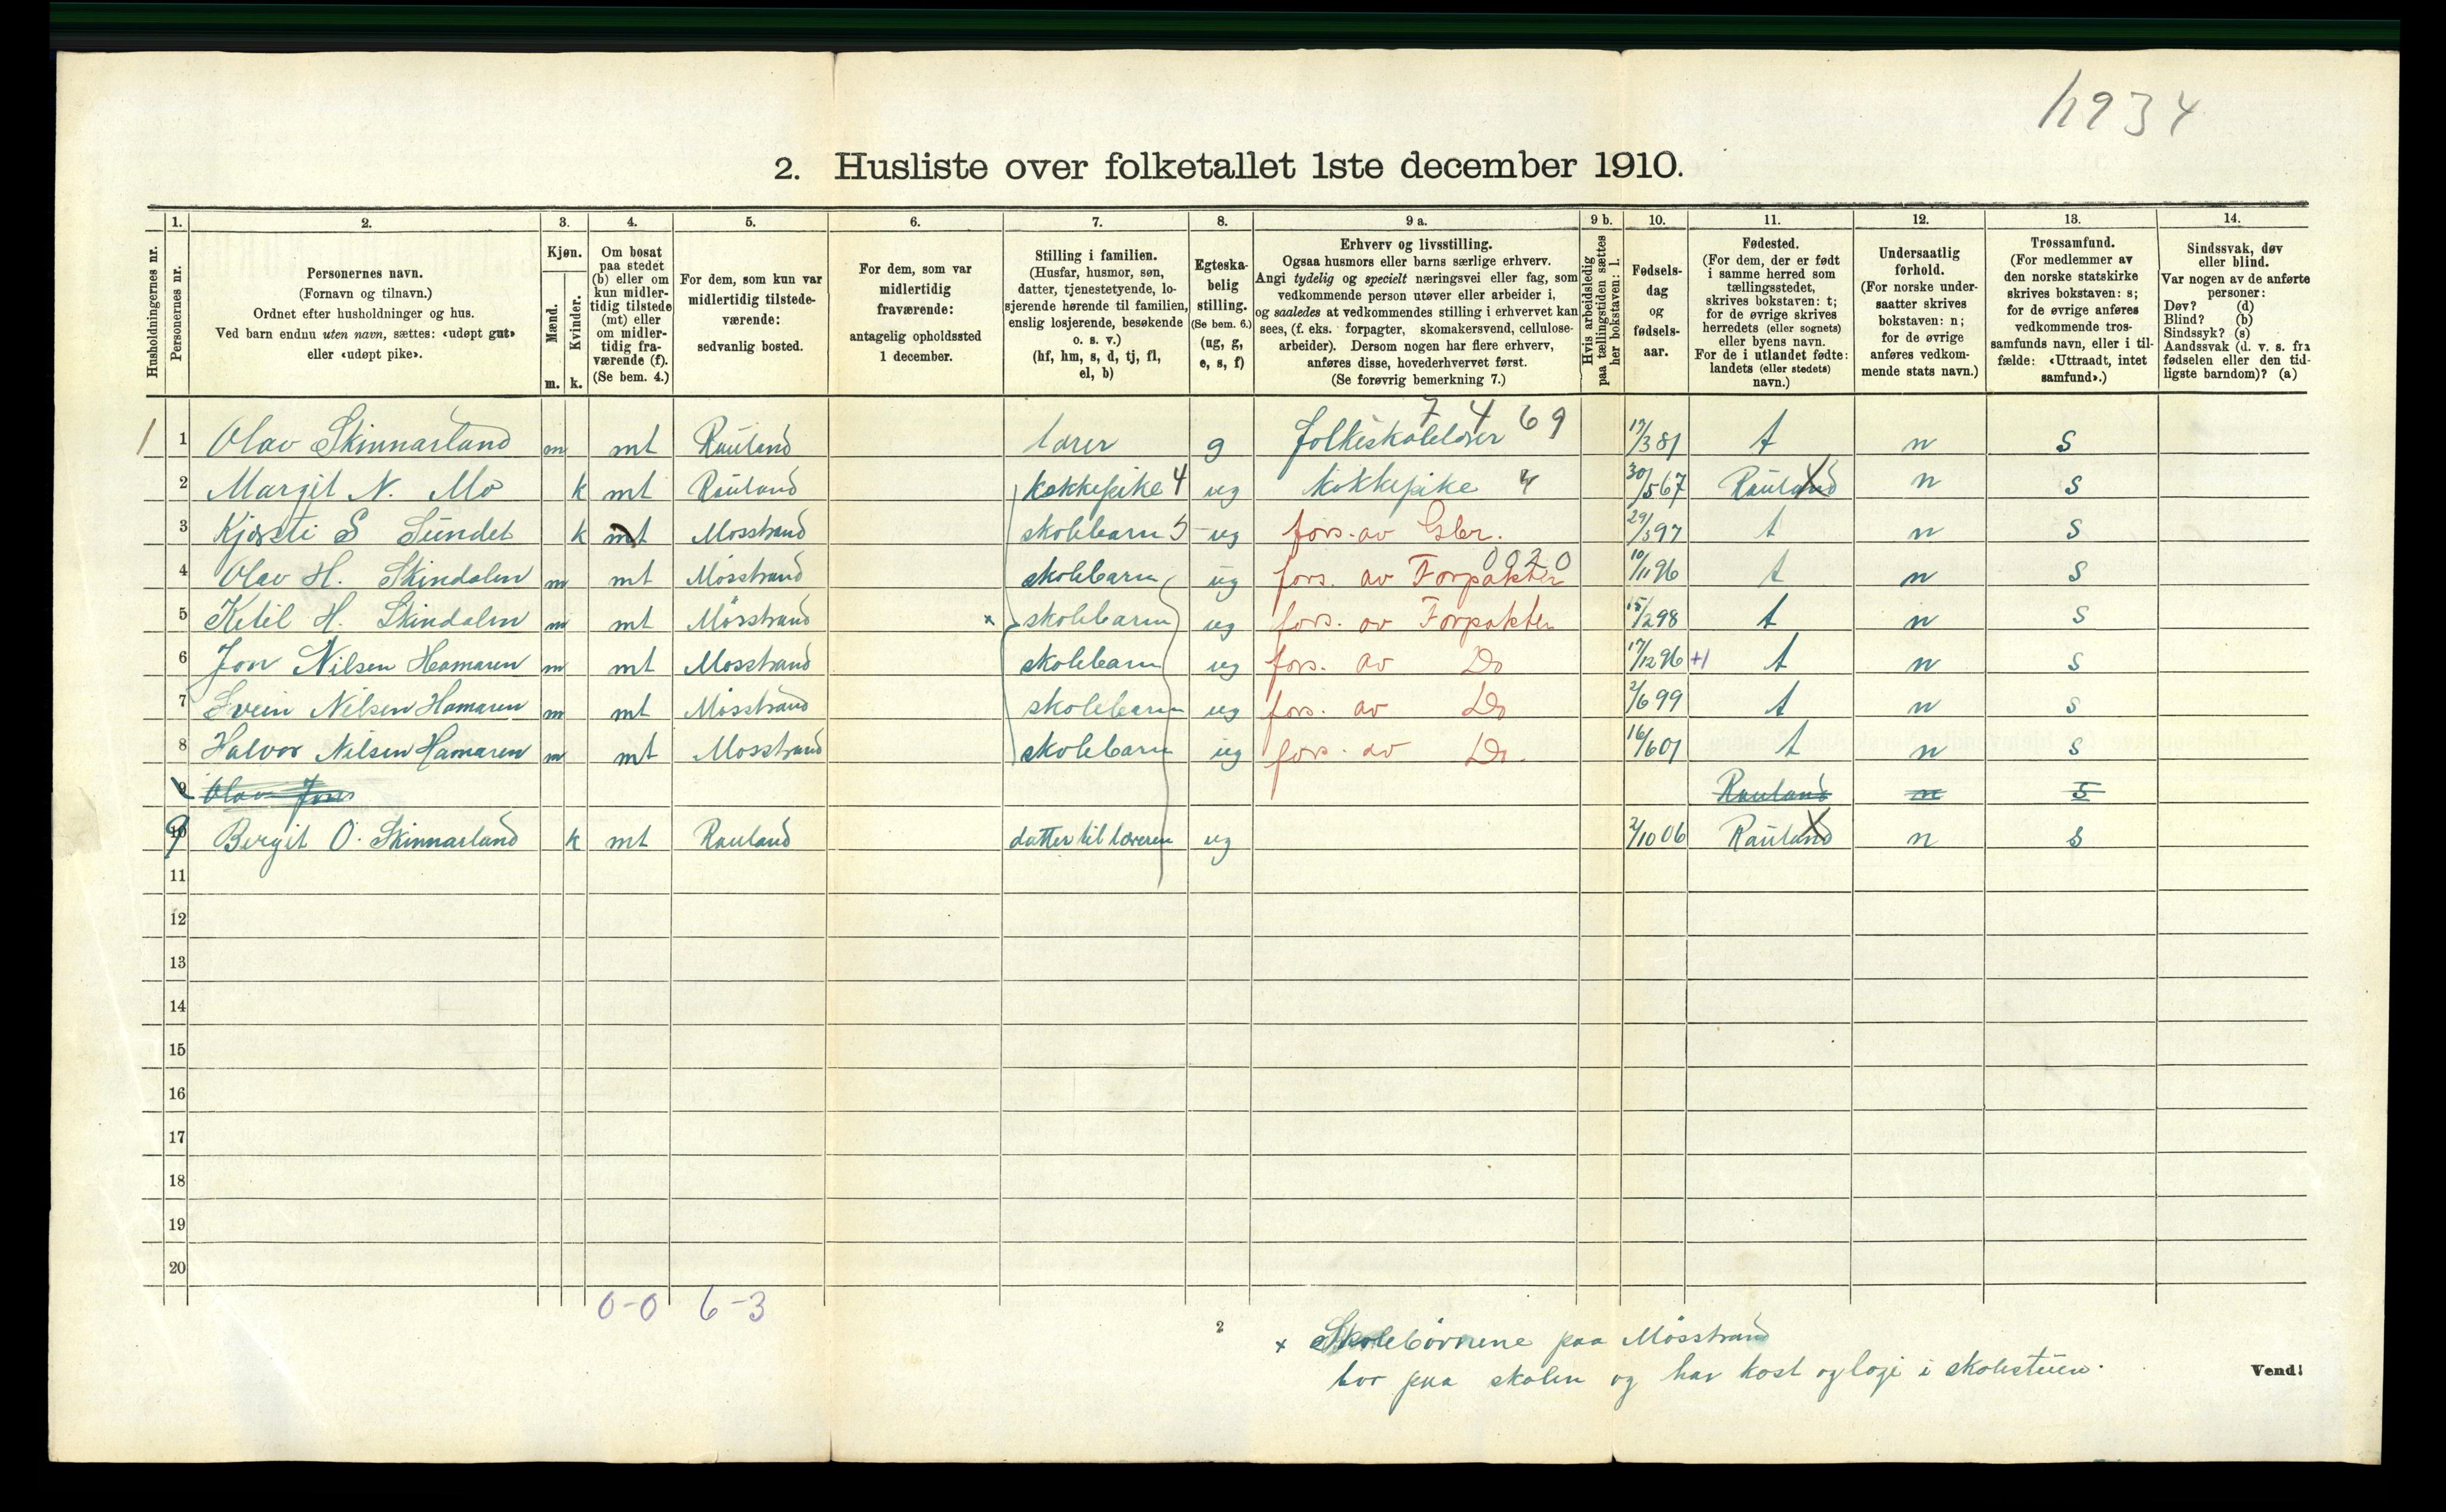 1934
2. Husliste over folketallet 1ste december 1910.
Husholdningernes nr.
1. Personernes nr.
2. Personernes navn.
(Fornavn og tilnavn.)
Ordnet efter husholdninger og hus.
Ved barn endnu uten navn, sættes: «udøpt gut»
eller «udøpt pike».
3. Kjøn.
Mænd. m.
Kvinder. k.
4. Om bosat
paa stedet
(b) eller om
kun midler-
tidig tilstede
(mt) eller
om midler-
tidig fra-
værende (f).
(Se bem. 4.)
5. For dem, som kun var
midlertidig tilstede-
værende:
sedvanlig bosted.
6. For dem, som var
midlertidig
fraværende:
antagelig opholdssted
1 december.
7. Stilling i familien.
(Husfar, husmor, søn,
datter, tjenestetyende, lo-
sjerende hørende til familien,
enslig losjerende, besøkende
o. s. v.)
(hf, hm, s, d, tj, fl,
el, b)
8. Egteska-
belig
stilling.
(Se bem. 6.)
(ug, g,
e, s, f)
9 a. Erhverv og livsstilling.
Ogsaa husmors eller barns særlige erhverv.
Angi tydelig og specielt næringsvei eller fag, som
vedkommende person utøver eller arbeider i,
og saaledes at vedkommendes stilling i erhvervet kan
sees, (f. eks. forpagter, skomakersvend, cellulose-
arbeider). Dersom nogen har flere erhverv,
anføres disse, hovederhvervet først.
(Se forøvrig bemerkning 7.)
9 b. Hvis arbeidsledig
paa tællingstiden sættes
her bokstaven: l.
10. Fødsels-
dag
og
fødsels-
aar.
11. Fødested.
(For dem, der er født
i samme herred som
tællingsstedet,
skrives bokstaven: t;
for de øvrige skrives
herredets (eller sognets)
eller byens navn.
For de i utlandet fødte:
landets (eller stedets)
navn.)
12. Undersaatlig
forhold.
(For norske under-
saatter skrives
bokstaven: n;
for de øvrige
anføres vedkom-
mende stats navn.)
13. Trossamfund.
(For medlemmer av
den norske statskirke
skrives bokstaven: s;
for de øvrige anføres
vedkommende tros-
samfunds navn, eller i til-
fælde: «Uttraadt, intet
samfund».)
14. Sindssvak, døv
eller blind.
Var nogen av de anførte
personer:
Døv? (d)
Blind? (b)
Sindssyk? (s)
Aandssvak (d. v. s. fra
fødselen eller den tid-
ligste barndom)? (a)
7 4 69
1 1 Olav Skinnarland m mt Rauland lærer g folkeskolelærer 17/3 81 t n s
2 Margit N. Mo k mt Rauland kokkepike 4 ug kokkepike 4 30/5 67 Rauland n s
3 Kjersti S Sundet k mt Mosstrand skolebarn 5 ug fors. av Gbr. 29/3 97 t n s
0020
4 Olav H. Skindalen m mt Mosstrand skolebarn ug fors. av Forpakter 10/11 96 t n s
5 Ketil H. Skindalen m mt Mösstrand x skolebarn ug fors. av Forpakter 15/2 98 t n s
6 Jon Nilsen Hamaren m mt Mosstrand skolebarn ug fors. av Do 17/12 96 +1 t n s
7 Svein Nilsen Hamaren m mt Mösstrand skolebarn ug fors. av Do 2/6 99 t n s
8 Halvor Nilsen Hamaren m mt Mosstrand skolebarn ug fors. av Do. 16/6 01 t n s
9 Olav Jons Rauland n s
10 9 Bergit O. Skinnarland k mt Rauland datter til læreren ug 2/10 06 Rauland n s
11
12
13
14
15
16
17
18
19
20
0-0 6-3
2
x Skolebörnene paa Mösstrand
bor paa skolen og har kost og logi i skolestuen.
Vend!